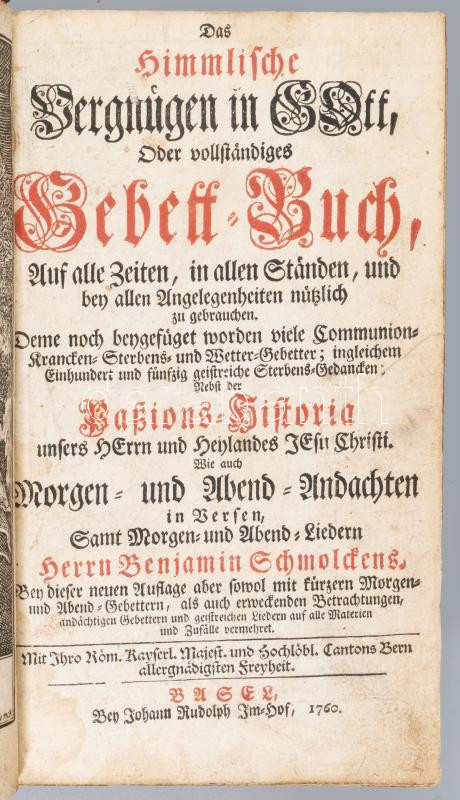 Das
Himmlische
Vergnügen in GOtt,
Oder vollständiges
Gebett-Buch,
Auf alle Zeiten, in allen Ständen, und
bey allen Angelegenheiten nützlich
zu gebrauchen.
Deme noch beygefüget worden viele Communion-
Krancken- Sterbens- und Wetter-Gebetter; ingleichem
Einhundert und fünfzig geistreiche Sterbens-Gedancken;
Nebst der
Paßions-Historia
unsers HErrn und Heylandes JEsu Christi.
Wie auch
Morgen- und Abend-Andachten
in Versen,
Samt Morgen- und Abend-Liedern
Herrn Benjamin Schmolckens.
Bey dieser neuen Auflage aber sowol mit kürzern Morgen-
und Abend-Gebettern, als auch erweckenden Betrachtungen,
andächtigen Gebettern und geistreichen Liedern auf alle Materien
und Zufälle vermehret.
Mit Ihro Röm. Kayserl. Majest. und Hochlöbl. Cantons Bern
allergnädigsten Freyheit.
BASEL,
Bey Johann Rudolph Im-Hof, 1760.